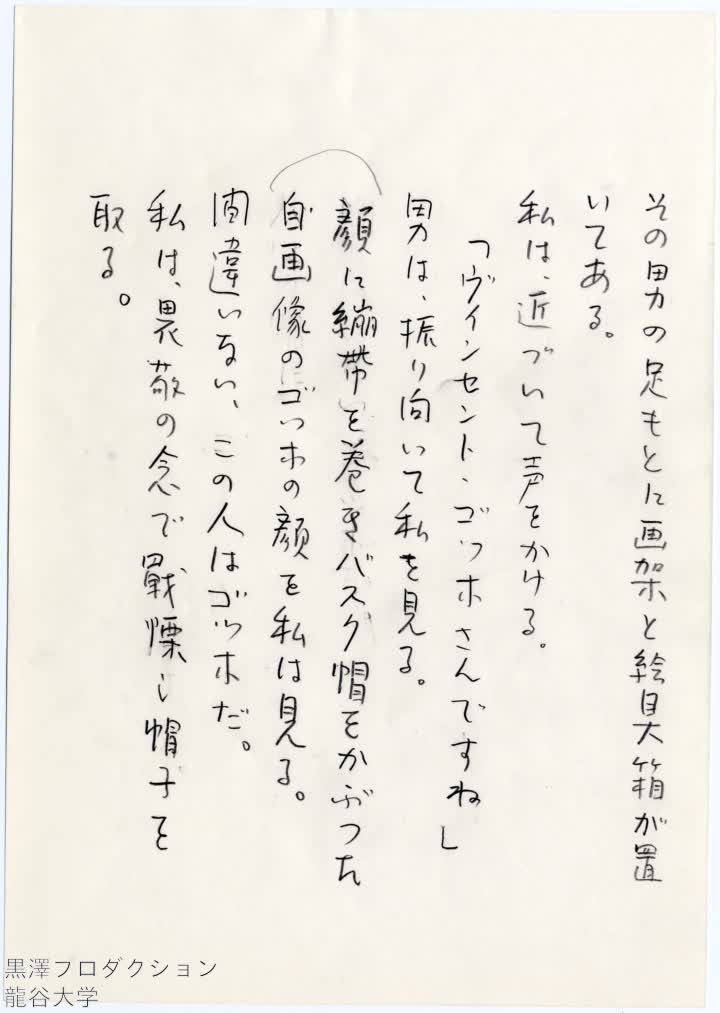 その男の足もとに画架と絵具箱が置
いてある。
私は、近づいて声をかける。
「ヴインセント・ゴッホさんですね」
男は、振り向いて私を見る。
顔に繃帯を巻きバスク帽をかぶつた
自画像のゴッホの顔を私は見る。
間違いない、この人はゴッホだ。
私は、畏敬の念で戰慄し帽子を
取る。
黒澤プロダクション
龍谷大学